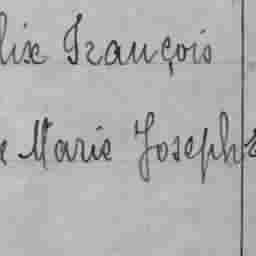 lix François
e Marie Joseph